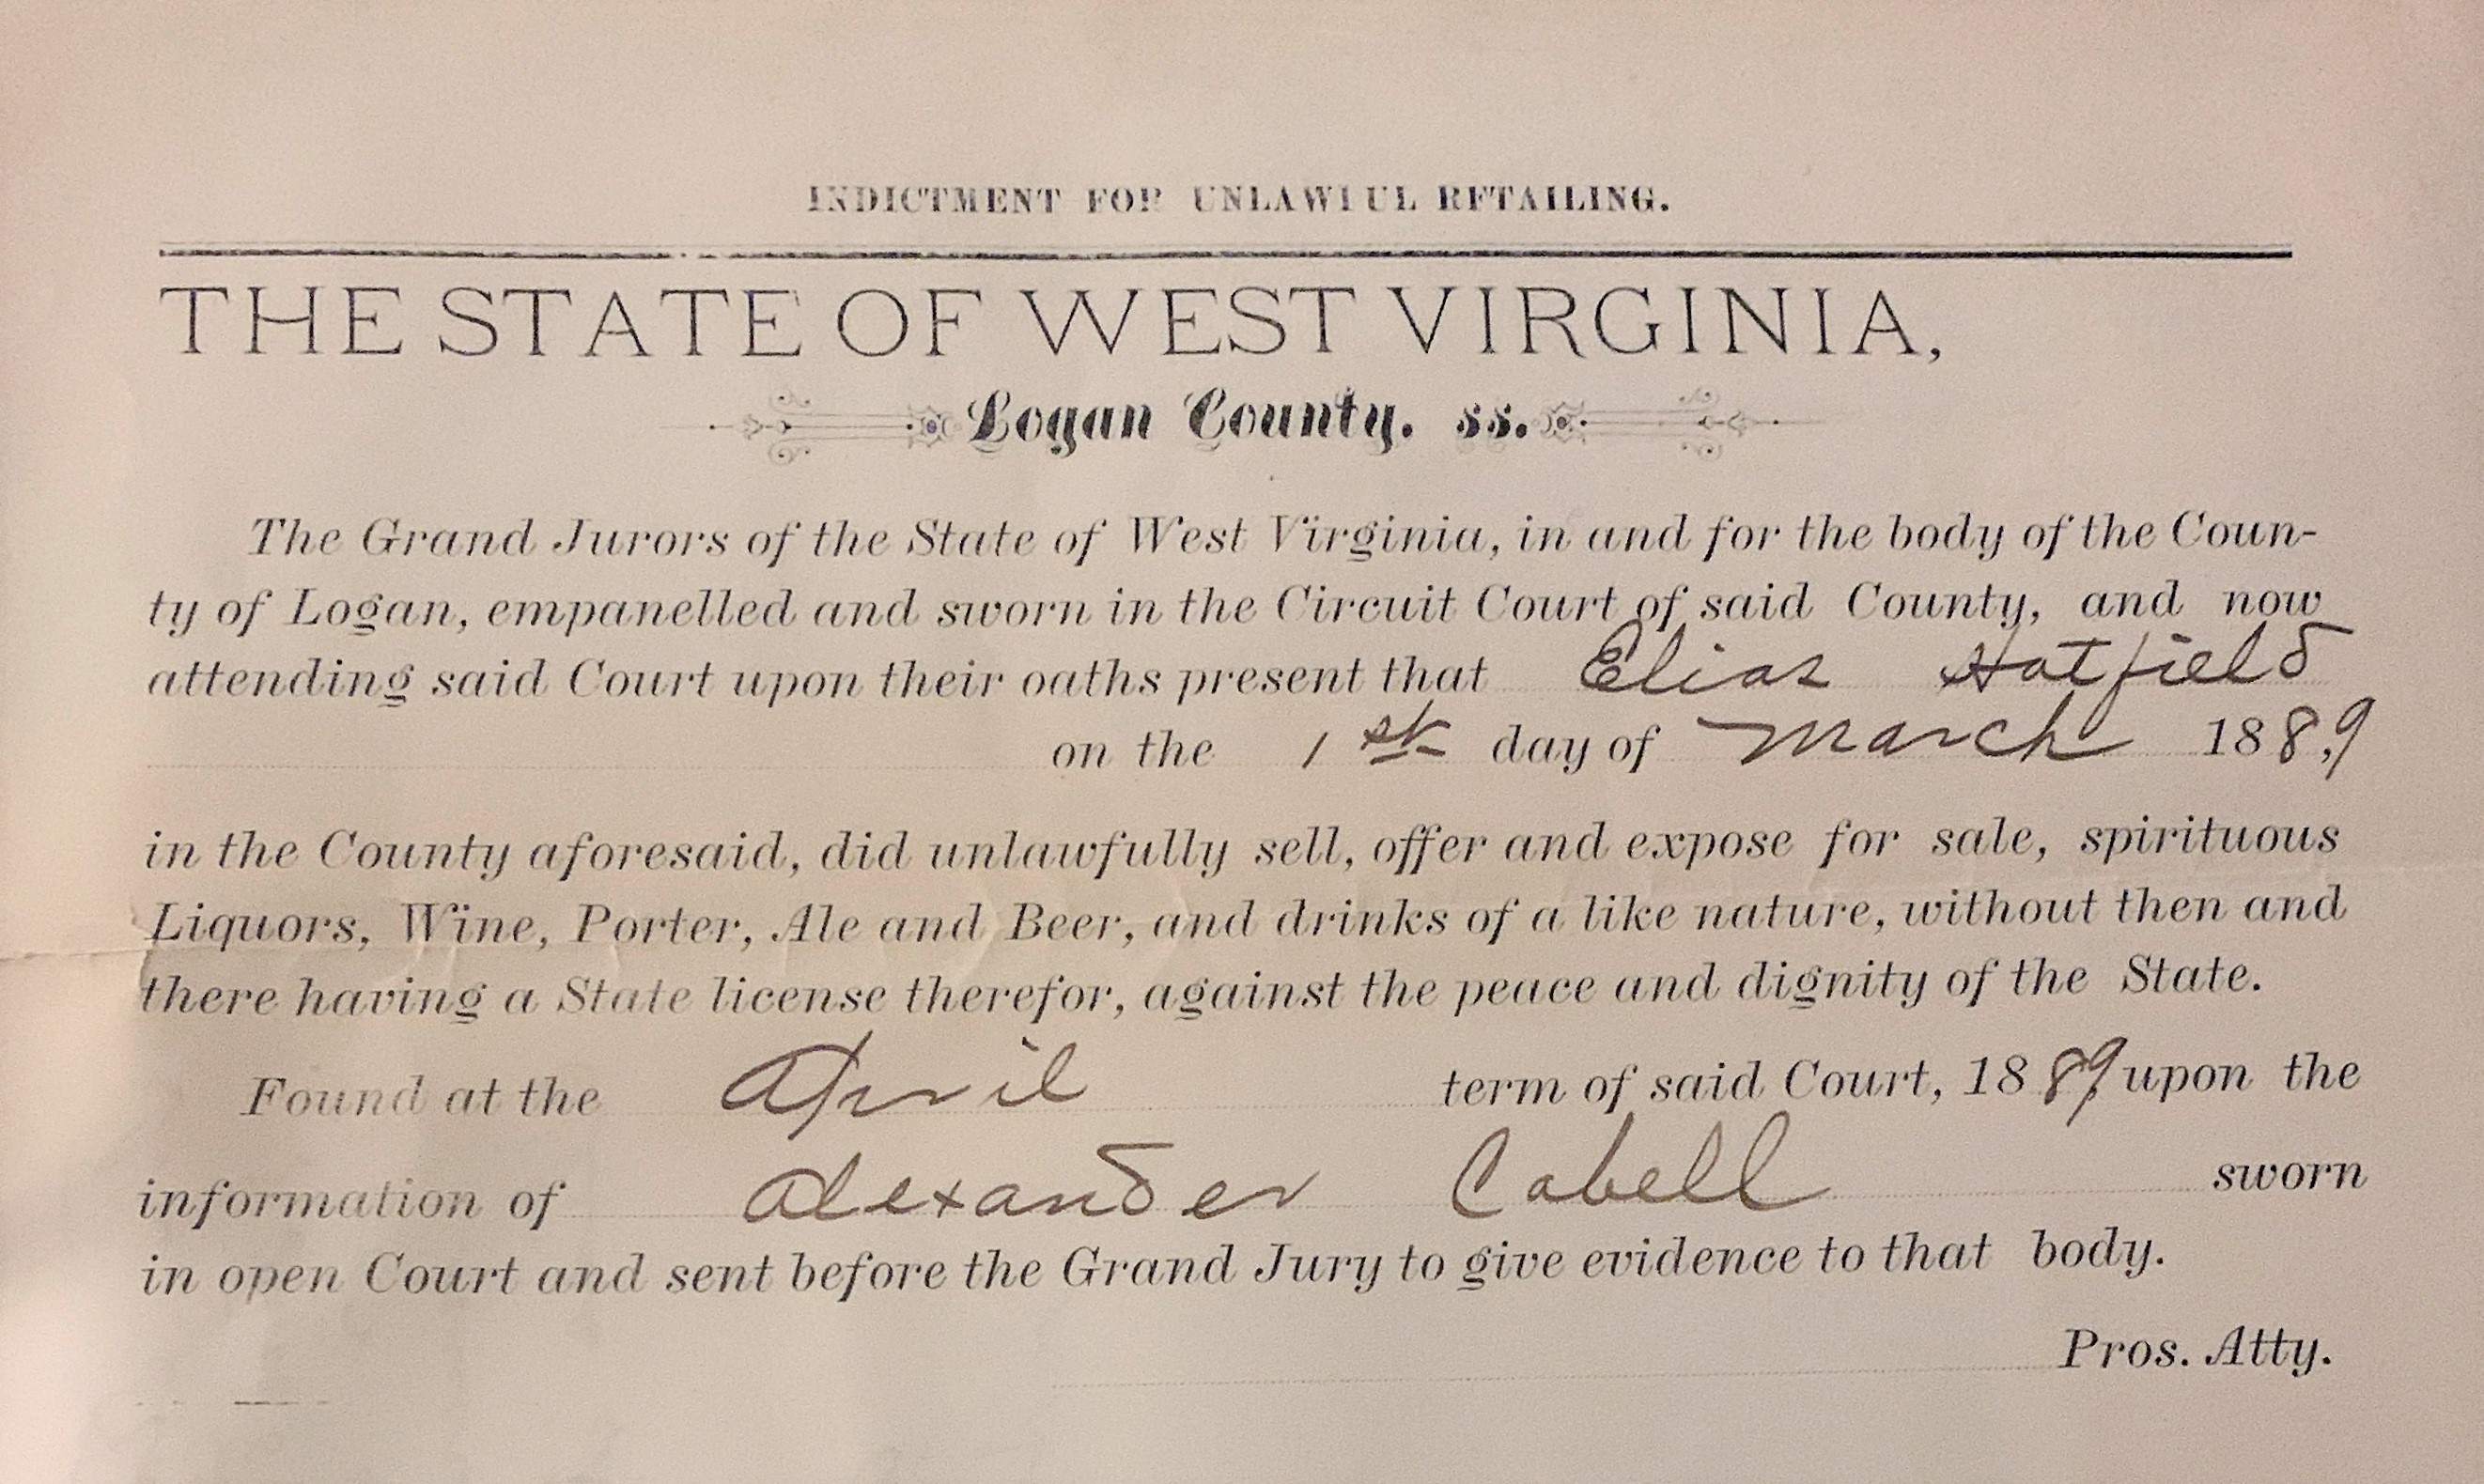 INDICTMENT FOR UNLAWFUL RETAILING.
THE STATE OF WEST VIRGINIA,
Logan County. ss.
The Grand Jurors of the State of West Virginia, in and for the body of the Coun-
ty of Logan, empanelled and sworn in the Circuit Court of said County, and now
attending said Court upon their oaths present that Elias Hatfield
on the 1st day of March 1889
in the County aforesaid, did unlawfully sell, offer and expose for sale, spirituous
Liquors, Wine, Porter, Ale and Beer, and drinks of a like nature, without then and
there having a State license therefor, against the peace and dignity of the State.
Found at the April term of said Court, 1889 upon the
information of Alexander Cabell sworn
in open Court and sent before the Grand Jury to give evidence to that body.
Pros. Atty.